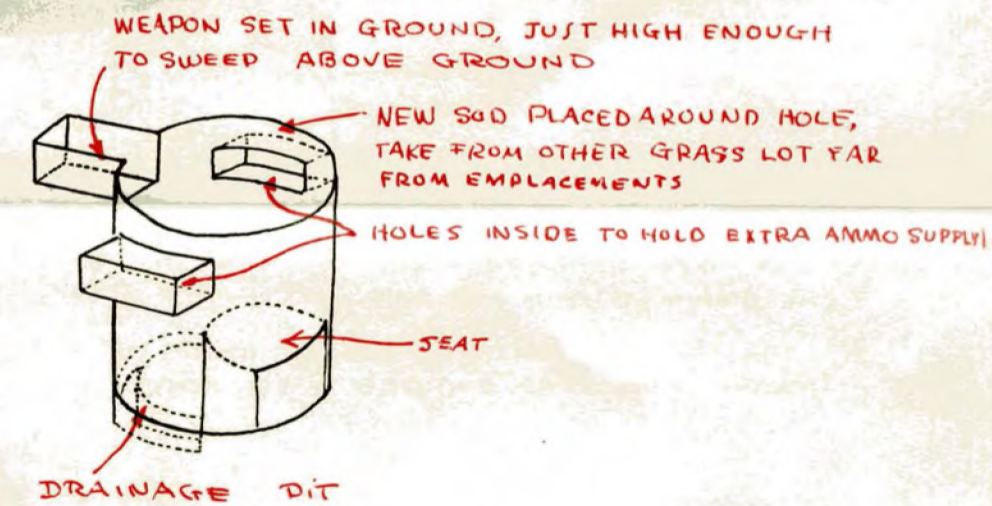 WEAPON SET IN GROUND, JUST HIGH ENOUGH
TO SWEEP ABOVE GROUND
NEW SOD PLACED AROUND HOLE,
TAKE FROM OTHER GRASS LOT FAR
FROM EMPLACEMENTS
HOLES INSIDE TO HOLD EXTRA AMMO SUPPLY
SEAT
DRAINAGE DIT